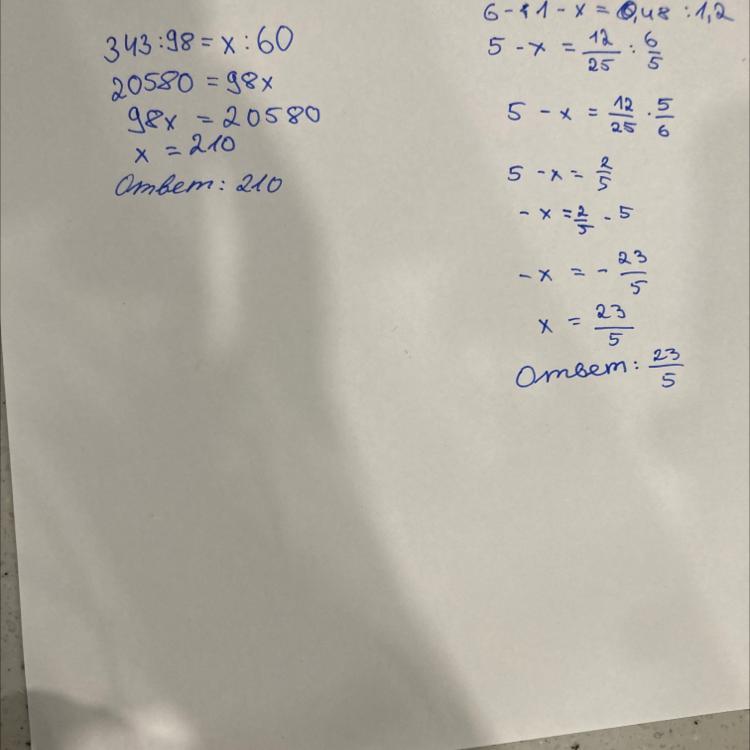 343:98=x:60
20580=98x
98x=20580
x=210
Ответ: 210
6-1-x=0,48:1,2
5-x=12/25:6/5
5-x=12/25·5/6
5-x=2/5
-x=2/5-5
-x=-23/5
x=23/5
Ответ: 23/5